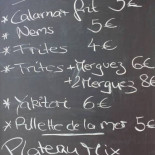 * Calamar frit 5€
* Nems 5€
* Frites 4€
* Frites + Merguez 6€
+ 2 Merguez 8€
* Yakitori 6€
* Rillette de la mer 5€
Plateau Mix